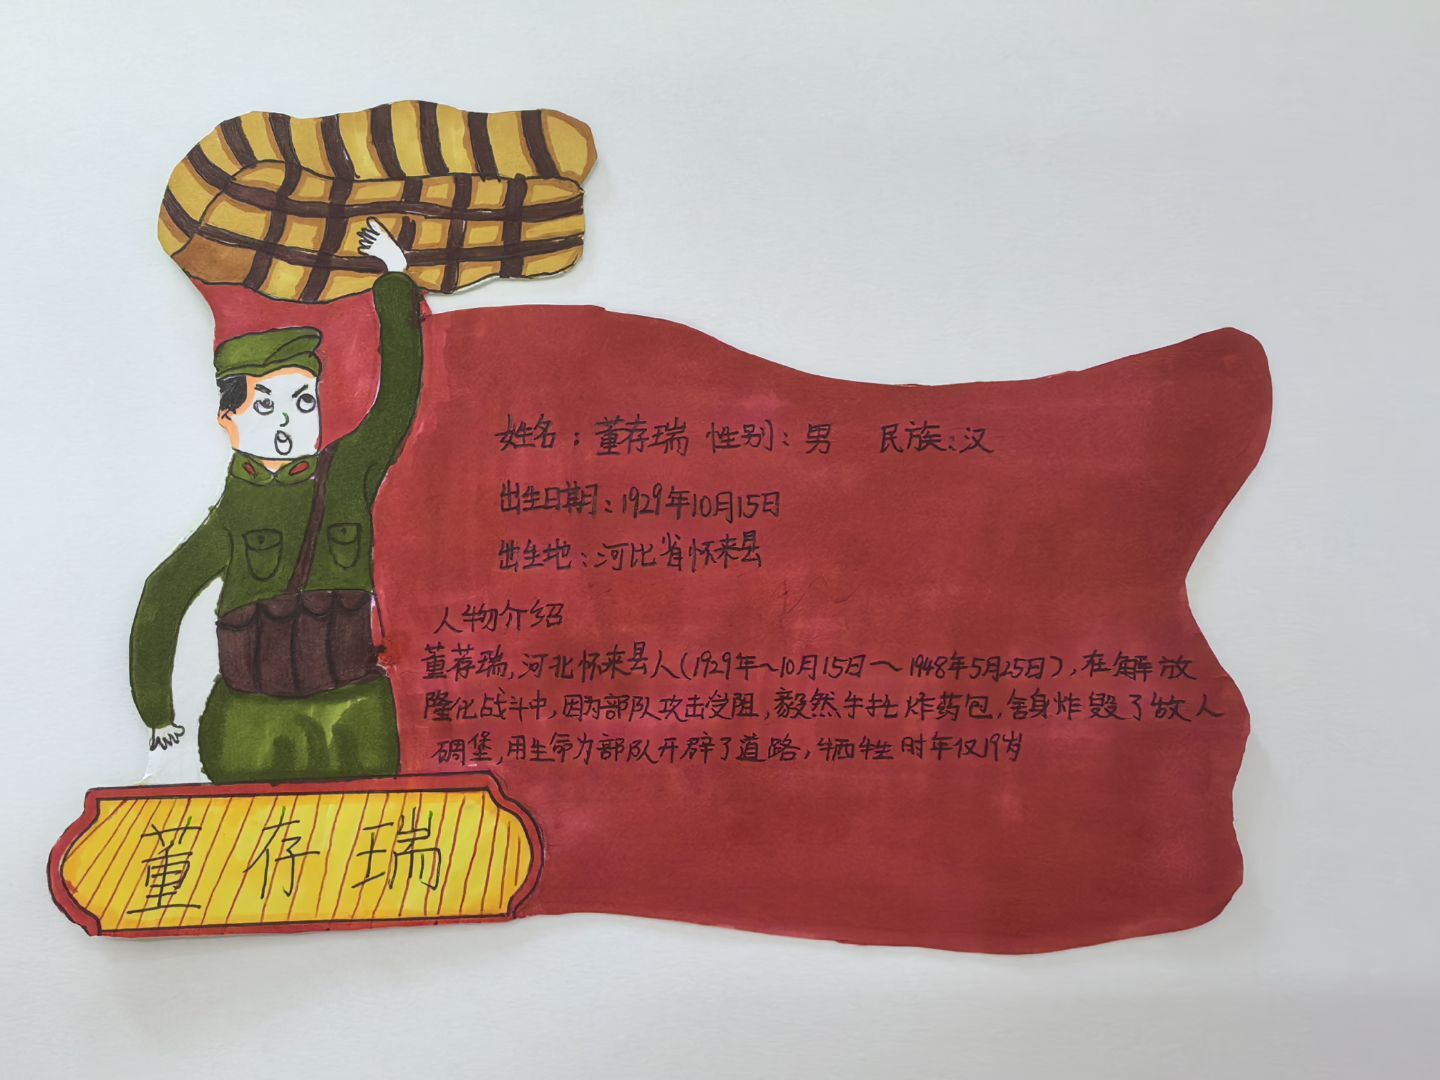 姓名：董存瑞 性别：男 民族：汉
出生日期：1929年10月15日
出生地：河北省怀来县
人物介绍
董存瑞，河北怀来县人（1929年～10月15日～1948年5月25日），在解放
隆化战斗中，因为部队攻击受阻，毅然手扗炸药包，舍身炸毁了敌人
碉堡，用生命为部队开辟了道路，牺牲时年仅19岁
董存瑞